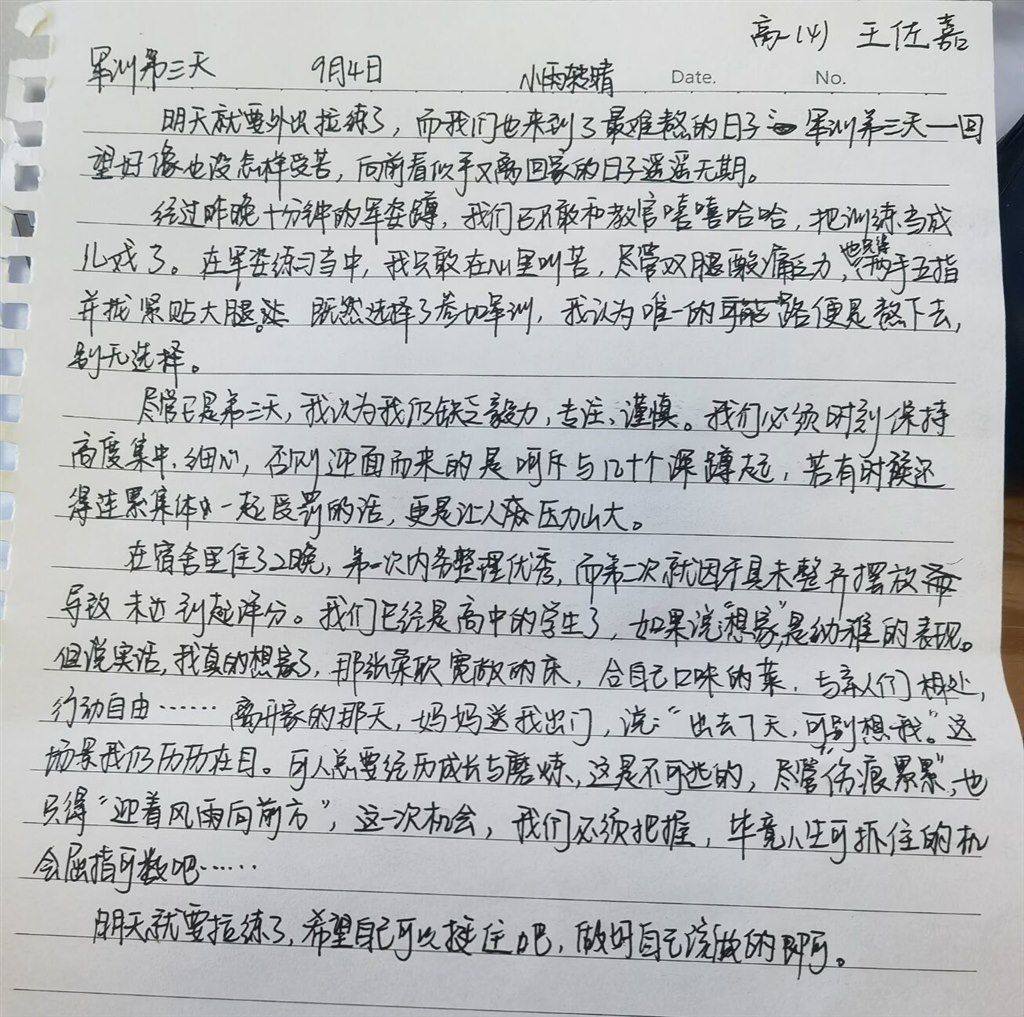 高一(4) 王佐嘉
军训第三天 9月4日 小雨转晴 Date. No.
明天就要外出拉练了，而我们也来到了最难熬的日子 军训第三天一回
望好像也没怎样受苦，向前看似乎又离回家的日子遥遥无期。
经过昨晚十分钟的军姿蹲，我们已不敢和教官嘻嘻哈哈，把训练当成
儿戏了。在军姿练习当中，我只敢在心里叫苦，尽管双腿酸痛乏力，两手五指
并拢紧贴大腿。既然选择了参加军训，我认为唯一的路便是熬下去，
别无选择。
尽管已是第三天，我认为我仍缺乏毅力，专注、谨慎。我们必须时刻保持
高度集中、细心，否则迎面而来的是呵斥与几十个深蹲起，若有时候还
得连累集体一起受罚的话，更是让人压力山大。
在宿舍里住了2晚，第一次内务整理优秀，而第二次就因牙具未整齐摆放
导致未达到起评分。我们已经是高中的学生了，如果说“想家”是幼稚的表现。
但说实话，我真的想家了，那张柔软宽敞的床，合自己口味的菜，与亲人们相处，
行动自由……离开家的那天，妈妈送我出门，说：“出去7天，可别想我。”这
场景我仍历历在目。可人总要经历成长与磨炼，这是不可逃的，尽管“伤痕累累”，也
只得“迎着风雨向前方”，这一次机会，我们必须把握，毕竟人生可抓住的机
会屈指可数吧……
明天就要拉练了，希望自己可以挺住吧，做好自己该做的即可。